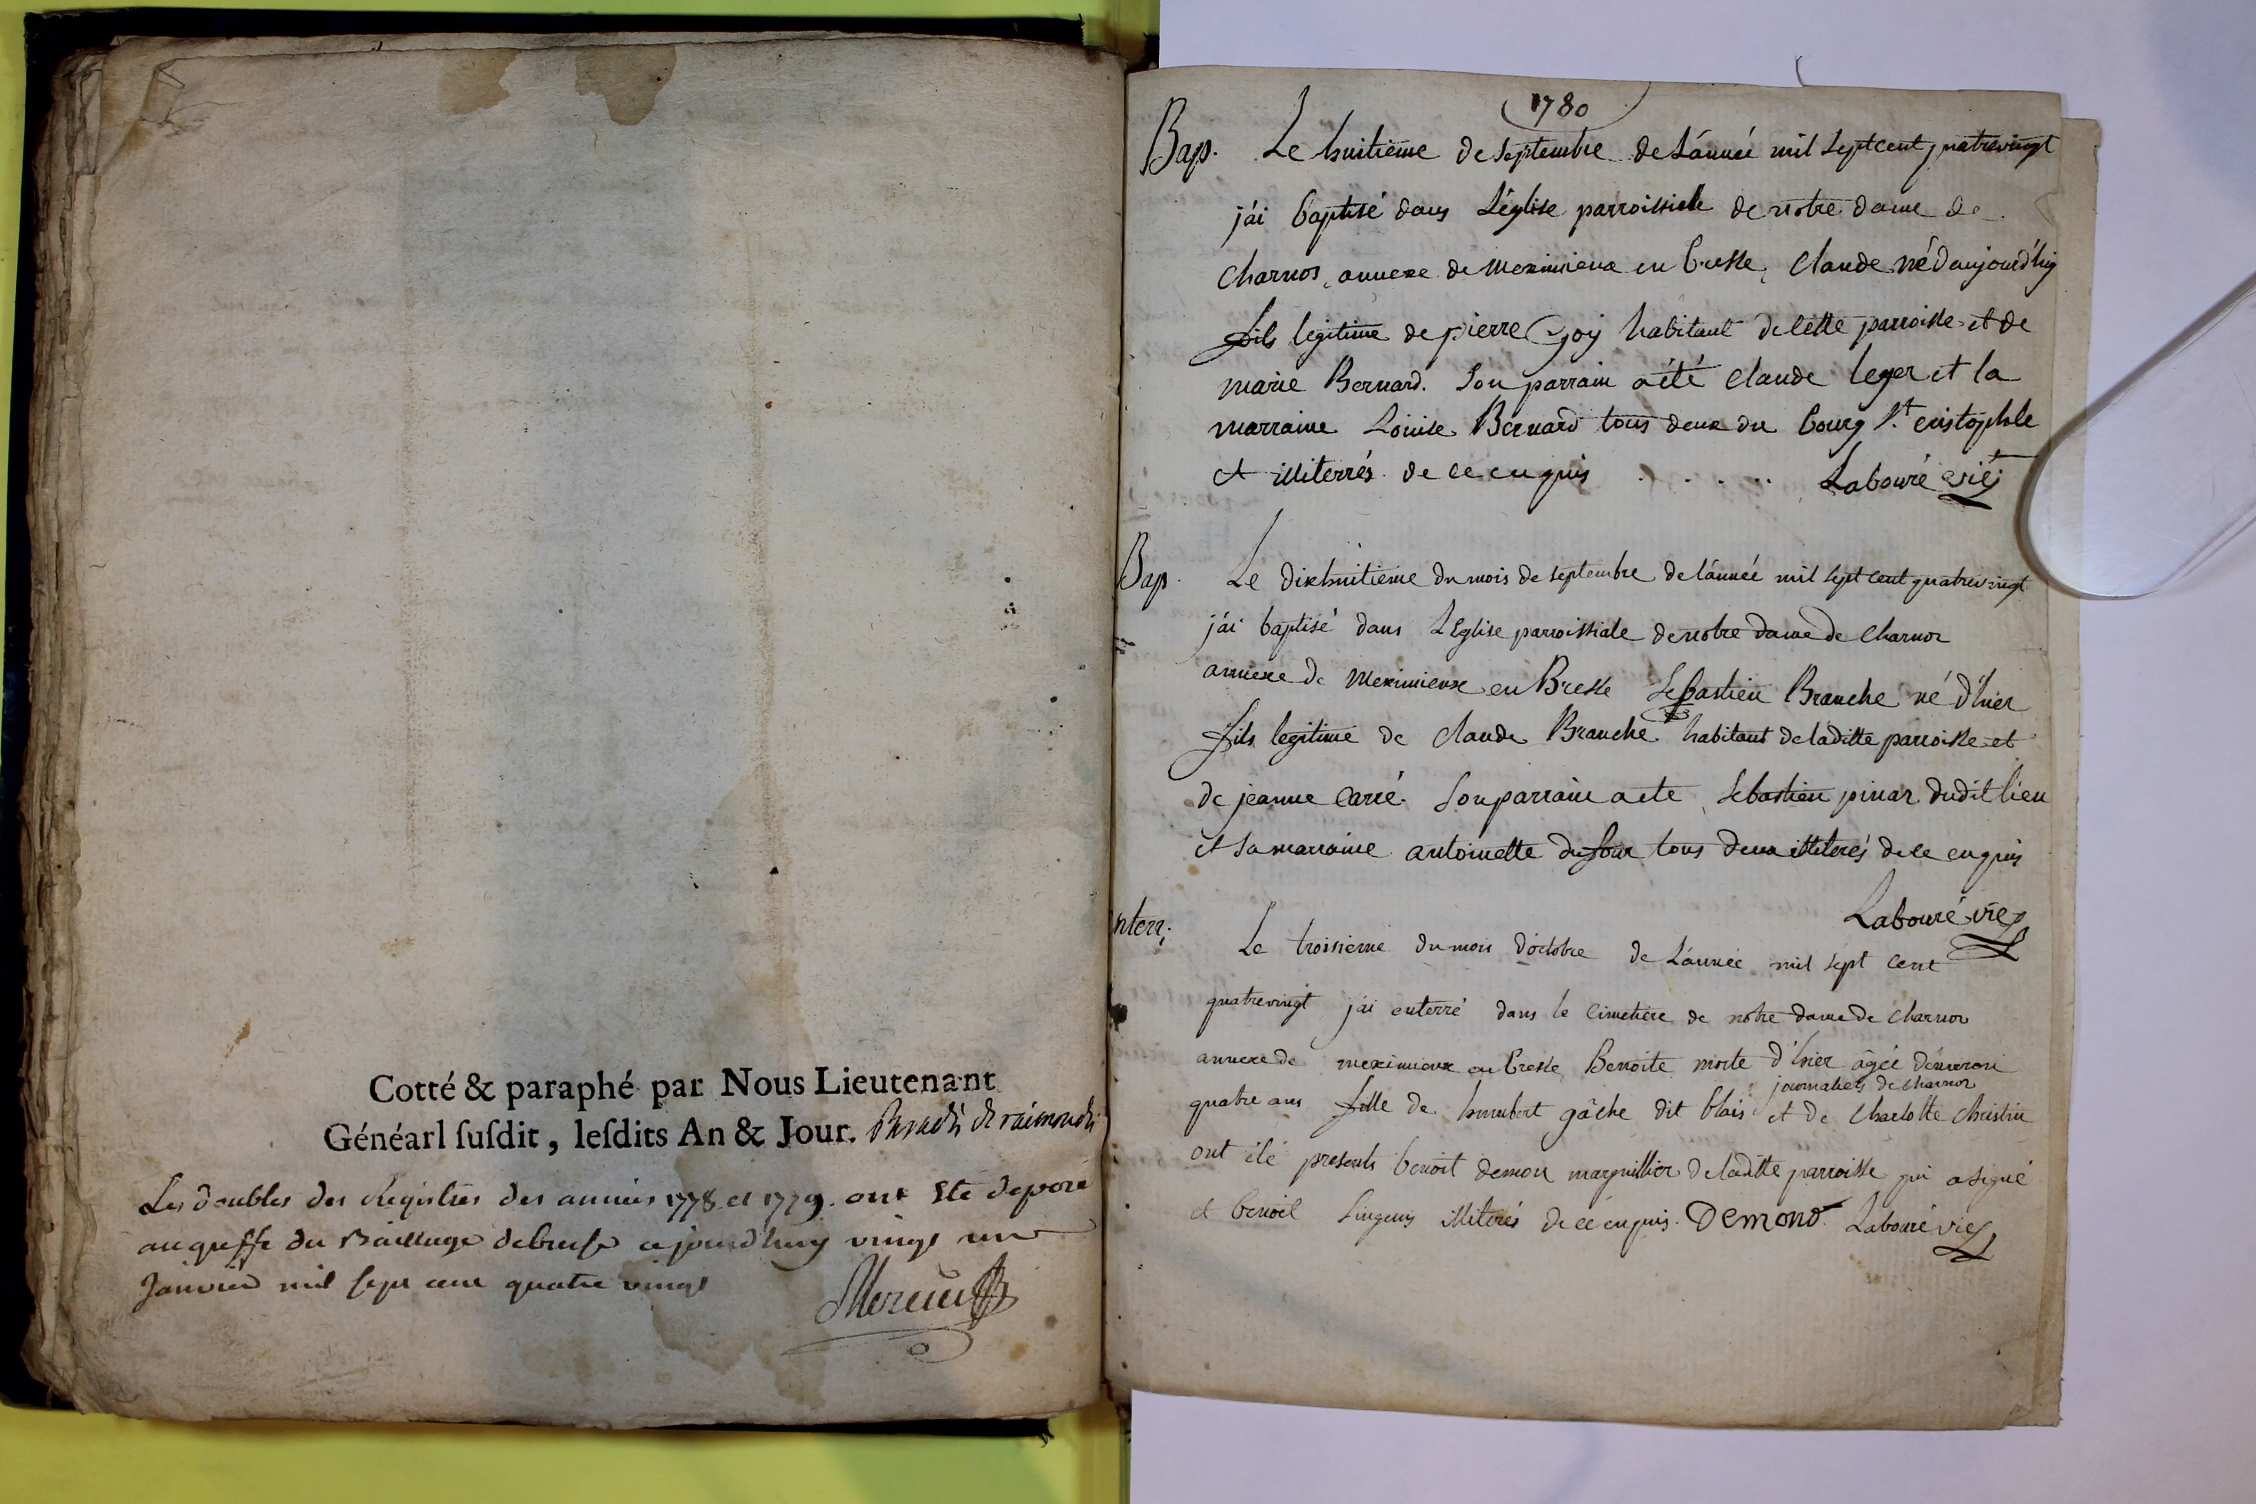 Cotté & paraphé par Nous Lieutenant
Généarl susdit, lesdits An & Jour.
Les doubles des Registres des années 1778 et 1779. ont Eté deposé
au greffe du Bailliage de bresse ajourdhuy vingt un
Janvier mil sept cent quatre vingt
1780
Bap. Le huitième de septembre de L'année mil sept cent quatrevingt
j'ai baptisé dans L'église parroissiale de notre dame de
Charnos, annexe de meximieux en bresse, Claude né d'aujourd'huy
fils legitime de pierre Goy habitant de cette parroisse et de
marie Bernard. Son parrain a été Claude leger et la
marraine Louise Bernard tous deux du bourg St. cristophle
et illiterrés de ce enquis . . . . . Labouré vic
Bap. Le dixhuitieme du mois de septembre de l'année mil sept cent quatrevingt
j'ai baptisé dans L'Eglise parroissiale de notre dame de Charnoz
annexe de Meximieux en Bresse Sebastien Branche né d'hier
fils legitime de Claude Branche habitant de laditte parroisse et
de jeanne Carré. Son parrain a ete Sebastien pinar dudit lieu
et sa marraine antoinette dufour tous deux illiterés de ce enquis
Labouré vic
nterr. Le troisième du mois d'octobre de L'année mil sept cent
quatrevingt j'ai enterré dans le Cimetière de notre dame de Charnoz
annexe de meximieux en bresse Benoite morte d'hier âgée d'environ
journaliers de charnoz
quatre ans fille de humbert gâche dit blais et de Charlotte Christin
ont été presents benoit demon marguillier de laditte parroisse qui a signé
et benoit illiterés de ce enquis. Demond Labouré vic